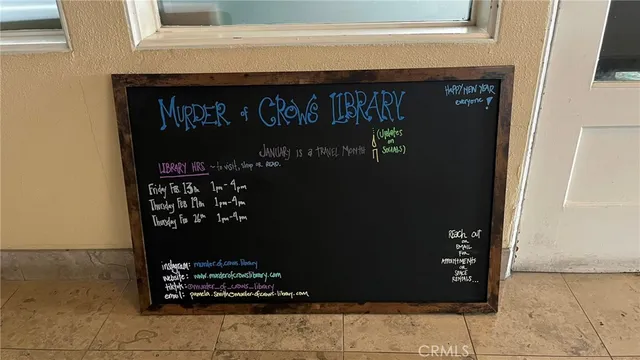 MURDER of CROWS LIBRARY
HAPPY NEW YEAR
everyone!
(UPDATES
on
SOCIALS)
JANUARY IS a TRAVEL MONTH
LIBRARY HRS. ~ to visit, shop or READ.
Friday Feb. 13th 1pm-4pm
Thursday Feb 19th 1pm-4pm
Thursday Feb 26th 1pm-4pm
REACH out
on
EMAIL
FOR
APPOINTMENTS
or
SPACE
RENTALS...
instagram: murder.of.crows.library
website: www.murderofcrowslibrary.com
tiktok: @murder_of_crows_library
email: pamela.smith@murder-of-crows-library.com
CRMLS